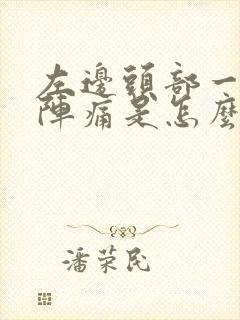 左邊頭部一
陣痛是怎麼
潘荣民